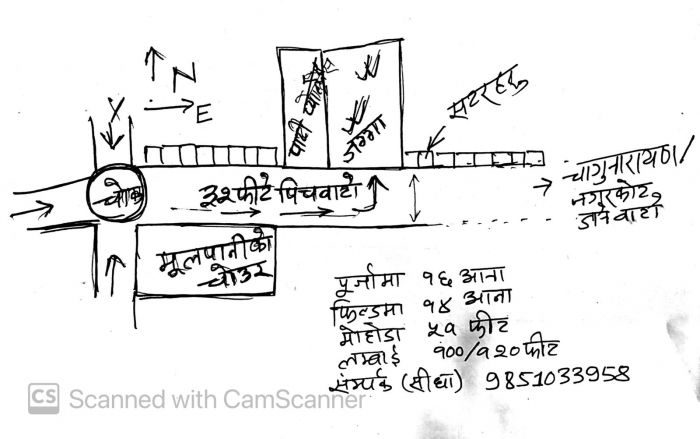 N
E
पार्टी प्यालेस
जग्गा
सटरहरू
चोक
३२ फीटे पिचबाटो
चाँगुनारायण/
नगरकोट
जाने बाटो
मूलपानीको
चौउर
पूर्जामा १६ आना
फिल्डमा १४ आना
मोहोडा ५१ फीट
लम्बाई १००/१२० फीट
सम्पर्क (सीधा) 9851033958
CS Scanned with CamScanner